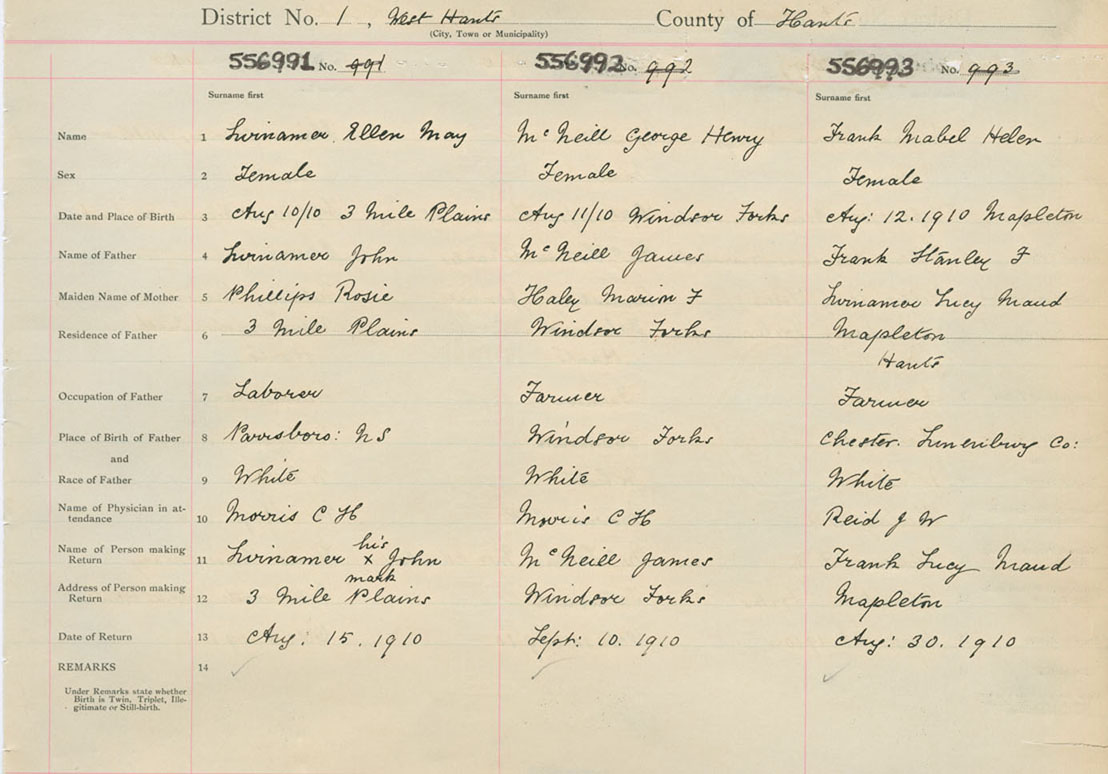 District No. 1, West Hants County of Hants
(City, Town or Municipality)
556991 No. 991 556992 No. 992 556993 No. 993
Surname first Surname first Surname first
Name 1 Swinamer Ellen May McNeill George Henry Frank Mabel Helen
Sex 2 Female Female Female
Date and Place of Birth 3 Aug 10/10 3 Mile Plains Aug 11/10 Windsor Forks Aug: 12. 1910 Mapleton
Name of Father 4 Swinamer John McNeill James Frank Stanley F
Maiden Name of Mother 5 Phillips Rosie Haley Marion F Swinamer Lucy Maud
Residence of Father 6 3 Mile Plains Windsor Forks Mapleton
Hants
Occupation of Father 7 Laborer Farmer Farmer
Place of Birth of Father 8 Parrsboro: N S Windsor Forks Chester. Lunenburg Co:
and
Race of Father 9 White White White
Name of Physician in at-
tendance 10 Morris C H Morris C H Reid J W
Name of Person making
Return 11 Swinamer his x mark John McNeill James Frank Lucy Maud
Address of Person making
Return 12 3 Mile Plains Windsor Forks Mapleton
Date of Return 13 Aug: 15. 1910 Sept: 10. 1910 Aug: 30. 1910
REMARKS 14
Under Remarks state whether
Birth is Twin, Triplet, Ille-
gitimate or Still-birth.